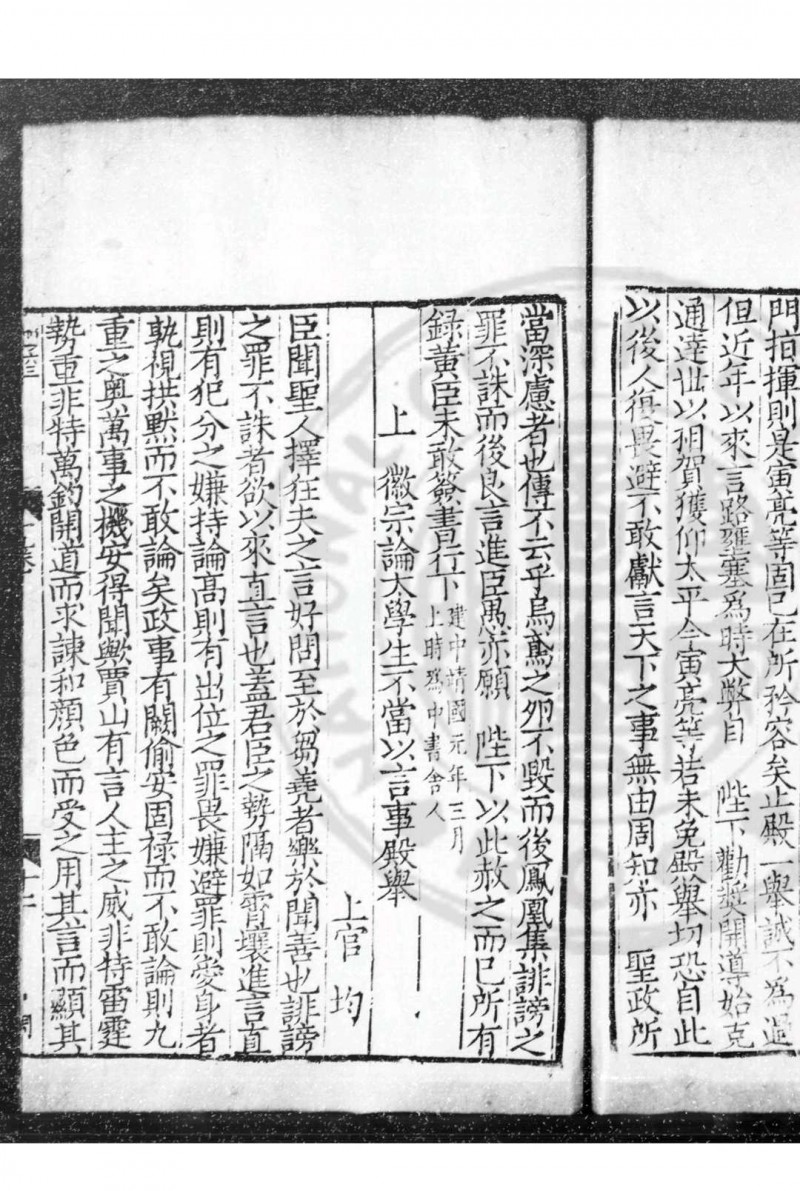 門指揮則是寅亮等固已在所矜容矣止殿一舉誠不為過
但近年以來言路壅塞為時大弊自　陛下勸奬開導始克
通達世以相賀獲仰太平今寅亮等若未免殿舉切恐自此
以後人復畏避不敢獻言天下之事無由周知亦　聖政所
當深慮者也傳不云乎烏鳶之卵不毀而後鳳凰集誹謗之
罪不誅而後良言進臣愚亦願　陛下以此赦之而已所有
録黃臣未敢簽書行下建中靖國元年三月
上時為中書舍人
上　徽宗論太學生不當以言事殿舉
上官均
臣聞聖人擇狂夫之言好問至於芻蕘者樂於聞善也誹謗
之罪不誅者欲以來直言也蓋君臣之勢隔如霄壤進言直
則有犯分之嫌持論高則有出位之罪畏嫌避罪則愛身者
孰視拱默而不敢論矣政事有闕偷安固禄而不敢論則九
重之奥萬事之機安得聞歟賈山有言人主之威非特雷霆
勢重非特萬鈞開道而求諫和顔色而受之用其言而顯其
NATIONAL